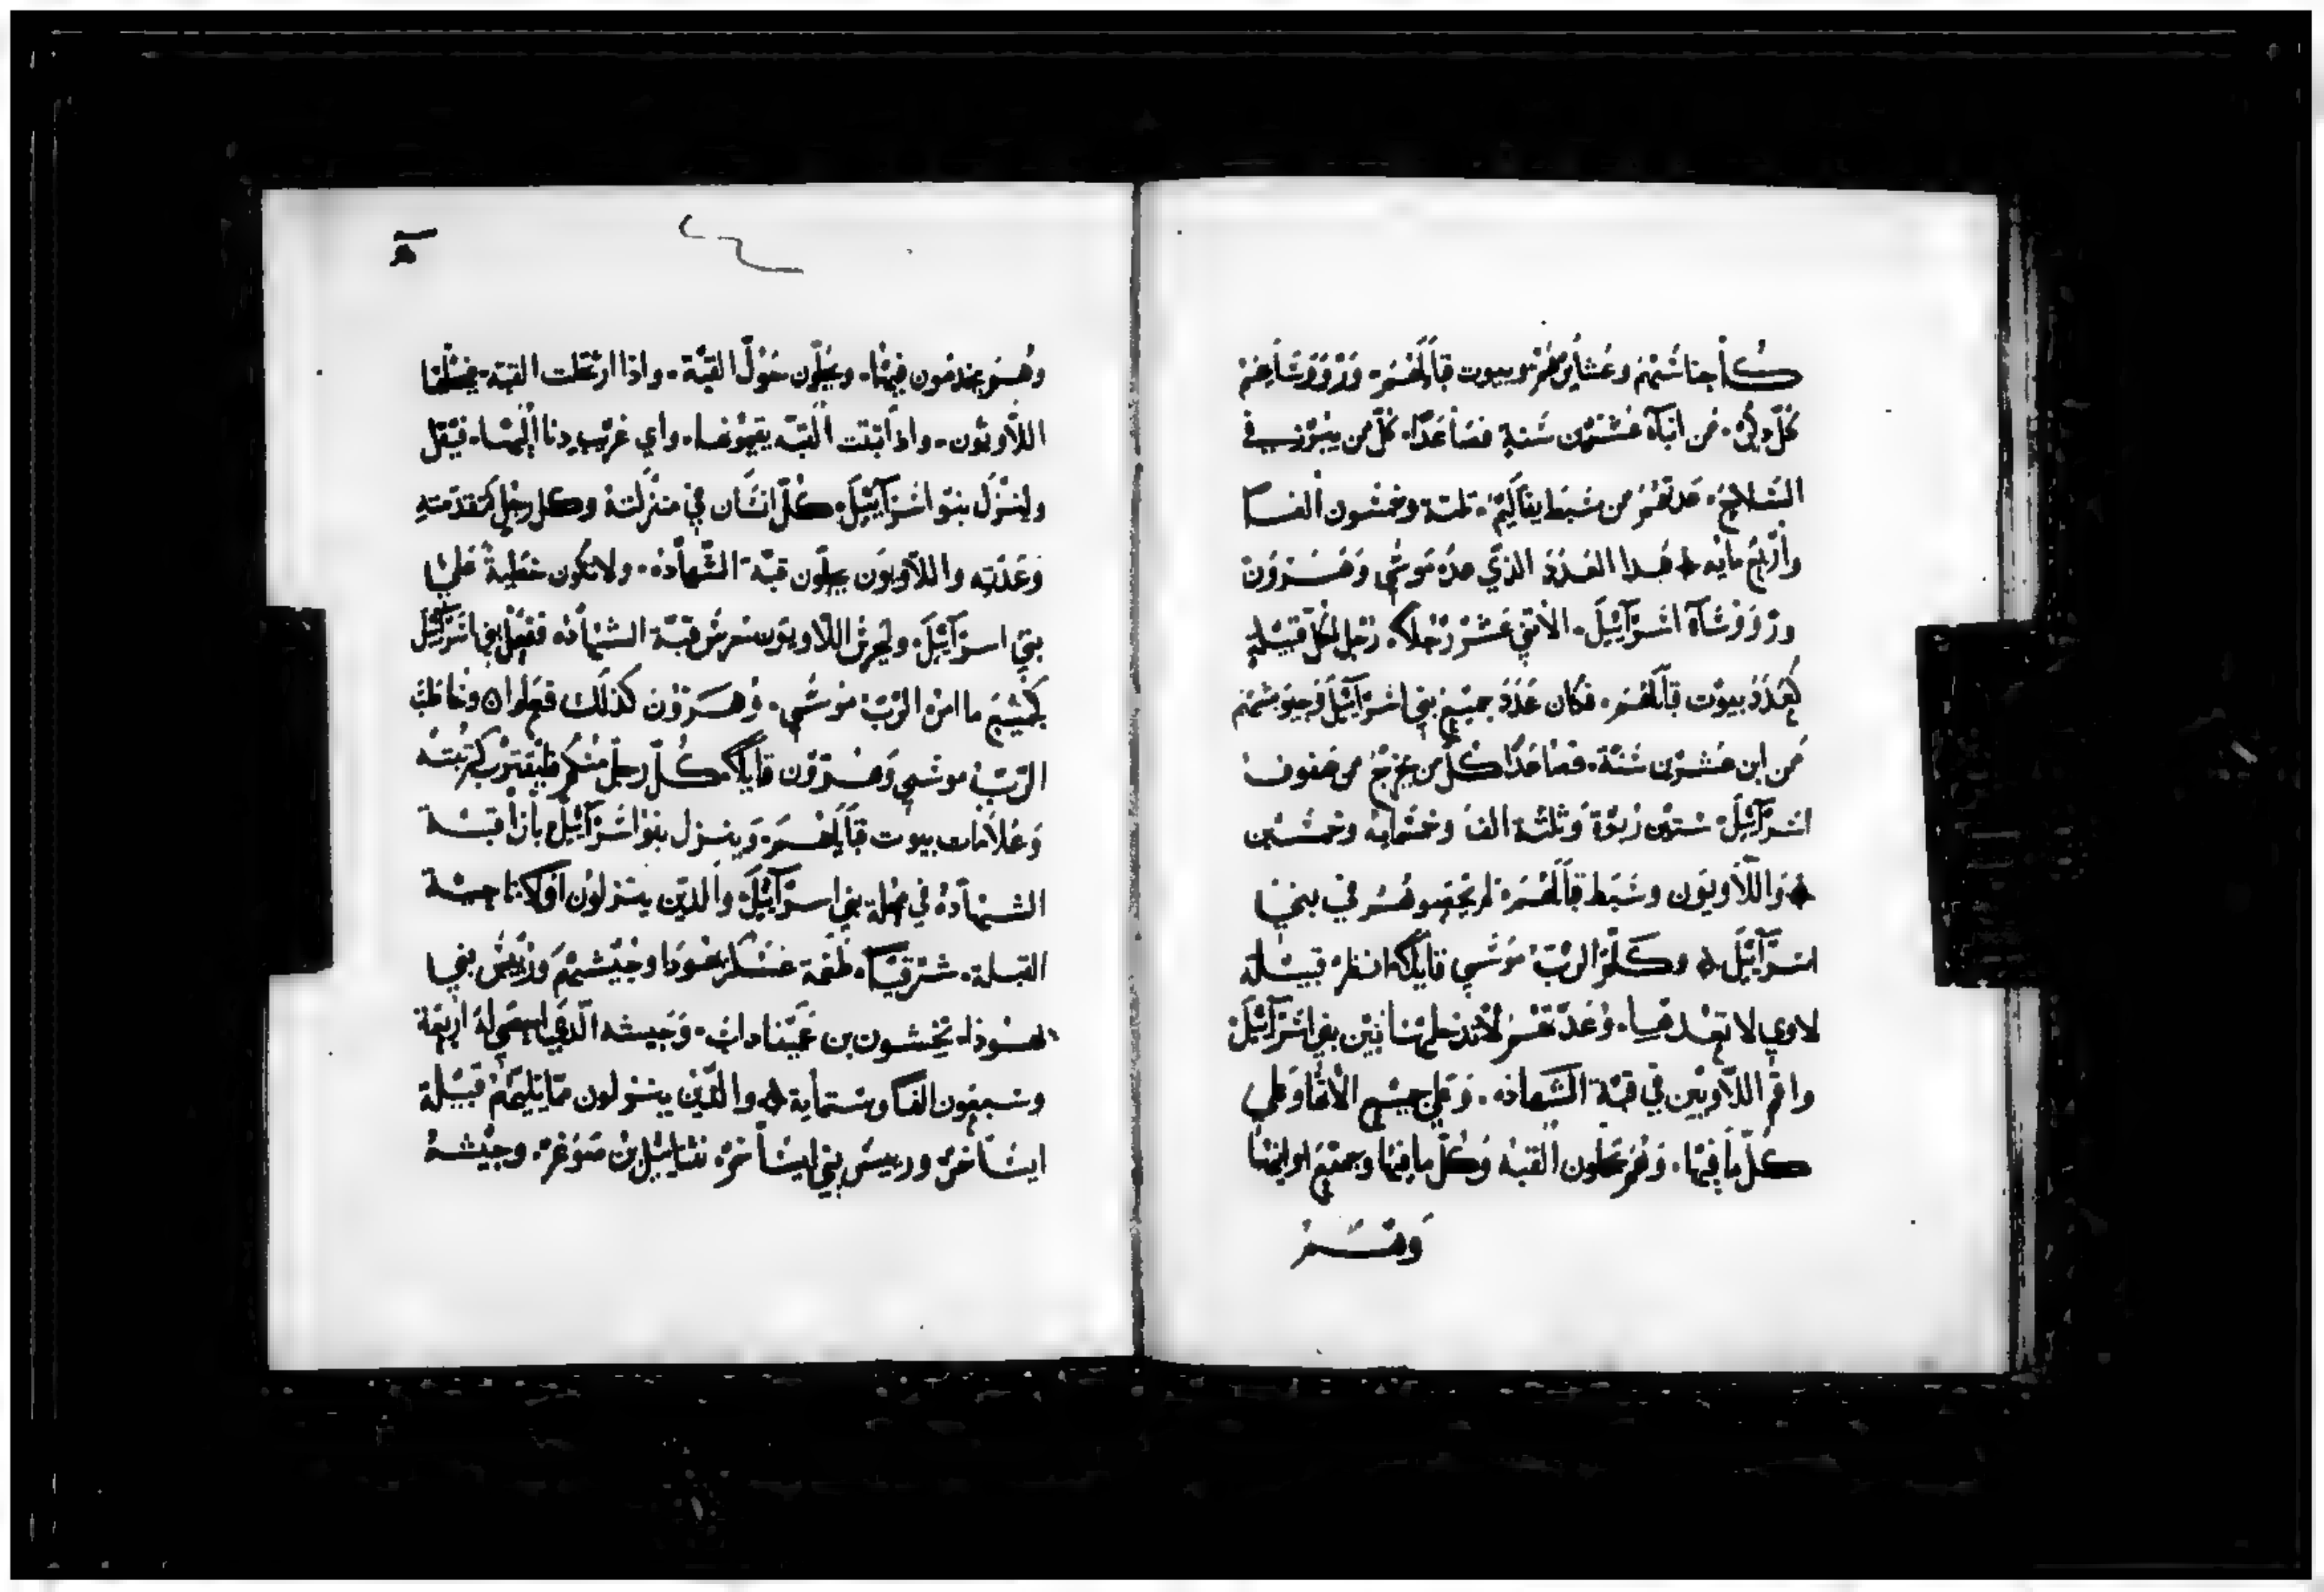 كاجناسهم وعشايرهم وبيوت قبايلهم. ورووساهم
كل ذكر. من ابناء عشرين سنة فصاعدا. كل من يبرز في
السلاح. عدتهم من سبط نفتاليم. ثلثة وخمسون الفا
واربع مايه هذا العدد الذي عده موسي وهرون
ورووساء اسراييل. الاثني عشر رجلا. رجل لكل قبيله
كعدد بيوت قبايلهم. فكان عدد جميع بني اسراييل وجيوشهم
من ابن عشرين سنة. فصاعدا كل من يخرج من صفوف
اسراييل ستين ربوة وثلثة الف وخمسمايه وخمسين
واللاويون وسبط قبايلهم لم يحصوهم في بني
اسراييل وكلم الرب موسي قايلا انظر قبيلة
لاوي لا تعدها. وعدتهم لا تدخلها بين بني اسراييل
واقم اللاويين في قبة الشهاده. وعلي جميع الاتها وعلي
كل ما فيها. وهم يحملون القبه وكل ما فيها وجميع اوانيها
وهم
وهم يخدمون فيها. ويحلون حول القبة. واذا ارتحلت القبة. يحملها
اللاويون. واذا ابتنت القبه يقيمونها. واي غريب دنا اليها. فيقتل
ولينزل بنو اسراييل. كل انسان في منزلته وكل رجل كتقدمته
وعدته واللاويون يحلون قبة الشهاده. ولا تكون خطية علي
بني اسراييل. وليحرس اللاويون حرس قبة الشهاده ففعل بني اسراييل
كجميع ما امر الرب موسي. وهرون كذلك فعلوا وخاطب
الرب موسي وهرون قايلا. كل رجل منكم فليقترب كرتبته
وعلامات بيوت قبايلهم. وينزل بنو اسراييل بازا قبة
الشهاده في محلة بني اسراييل والذين ينزلون اولا ناحية
القبلة. شرقيا. طغمة عسكر يهودا وجيشهم وريس بني
يهوذا. نحشون بن عميناداب. وجيشه الذي احصي له اربعة
وسبعون الفا وستماية والذين ينزلون مما يليهم قبيلة
ايساخر وريس بني ايساخر. نثناييل بن صوغر. وجيشه